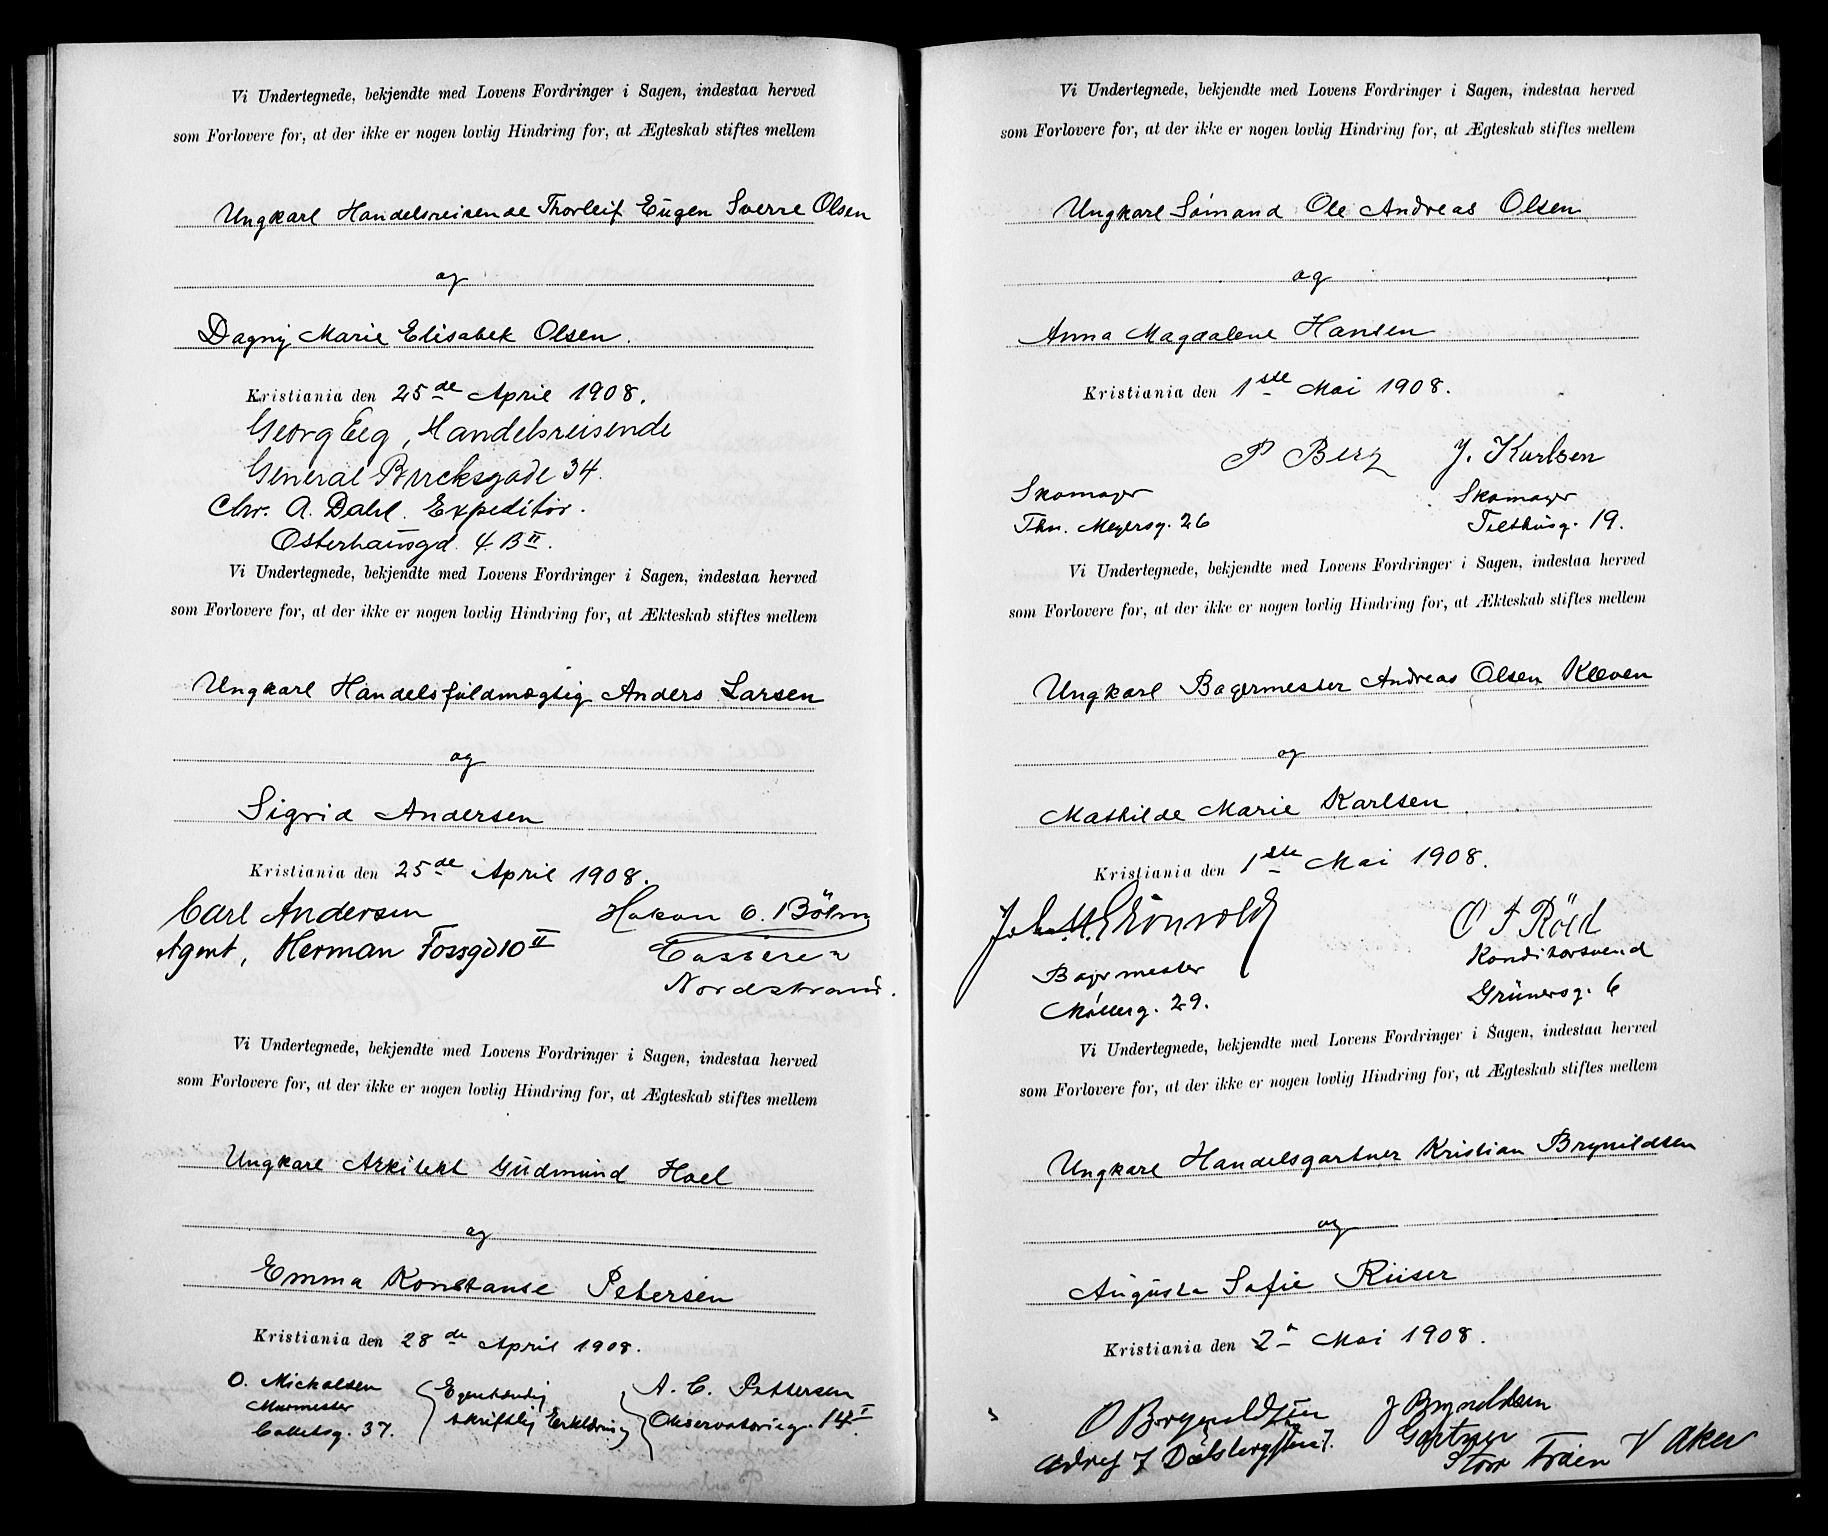 Vi Undertegnede, bekjendte med Lovens Fordringer i Sagen, indestaa herved
som Forlovere for, at der ikke er nogen lovlig Hindring for, at Ægteskab stiftes mellem
Ungkarl Handelsreisende Thorleif Eugen Sverre Olsen
og
Dagny Marie Elisabek Olsen.
Kristiania den 25de April 1908.
Georg Eeg, Handelsreisende
General Bircksgade 34.
Chr. A. Dahl. Expeditør.
Osterhausgd. 4 B II.
Vi Undertegnede, bekjendte med Lovens Fordringer i Sagen, indestaa herved
som Forlovere for, at der ikke er nogen lovlig Hindring for, at Ækteskab stiftes mellem
Ungkarl Handelsfuldmægtig Anders Larsen
og
Sigrid Andersen
Kristiania den 25de April 1908.
Carl Andersen Hakon C. Böhm
Agent, Herman Fossgd 10 II Casserer
Nordstrand.
Vi Undertegnede, bekjendte med Lovens Fordringer i Sagen, indestaa herved
som Forlovere for, at der ikke er nogen lovlig Hindring for, at Ægteskab stiftes mellem
Ungkarl Arkitekt Gudmund Hoel
og
Emma Konstanse Petersen
Kristiania den 28de April 1908.
O. Michalsen Egenhændig A. C. Pettersen
Murmester skriftlig Erklæring Observatoriegt. 14 I
Colletsg. 37.
Vi Undertegnede, bekjendte med Lovens Fordringer i Sagen, indestaa herved
som Forlovere for, at der ikke er nogen lovlig Hindring for, at Ægteskab stiftes mellem
Ungkarl Sømand Ole Andreas Olsen
og
Anna Magdalene Hansen
Kristiania den 1ste Mai 1908.
P Berg J. Karlsen
Skomager Skomager
Thv. Meyersg. 26 Tilthusg. 19.
Vi Undertegnede, bekjendte med Lovens Fordringer i Sagen, indestaa herved
som Forlovere for, at der ikke er nogen lovlig Hindring for, at Ækteskab stiftes mellem
Ungkarl Bagermester Andreas Olsen Kleven
og
Mathilde Marie Karlsen
Kristiania den 1ste Mai 1908.
Joh. M. Grönvold O S Röed
Bagermester Konditorsvend
Møllerg. 29. Grünersg. 6
Vi Undertegnede, bekjendte med Lovens Fordringer i Sagen, indestaa herved
som Forlovere for, at der ikke er nogen lovlig Hindring for, at Ægteskab stiftes mellem
Ungkarl Handelsgartner Kristian Brynildsen
og
Augusta Sofie Riiser
Kristiania den 2 Mai 1908.
O Brynildsen J Brynildsen
Gartner
Store Frøen V Aker